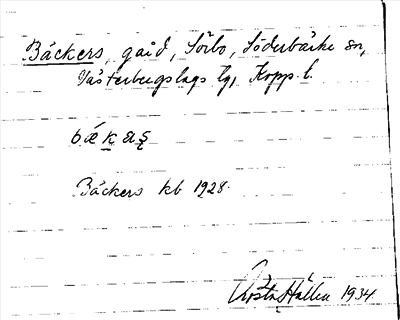 Bäckers, gård, Sörbo, Söderbärke sn,
Västerbergslags tg, Kopp. l.
bäkas
Bäckers kb 1928.
Gösta Hallén 1934.